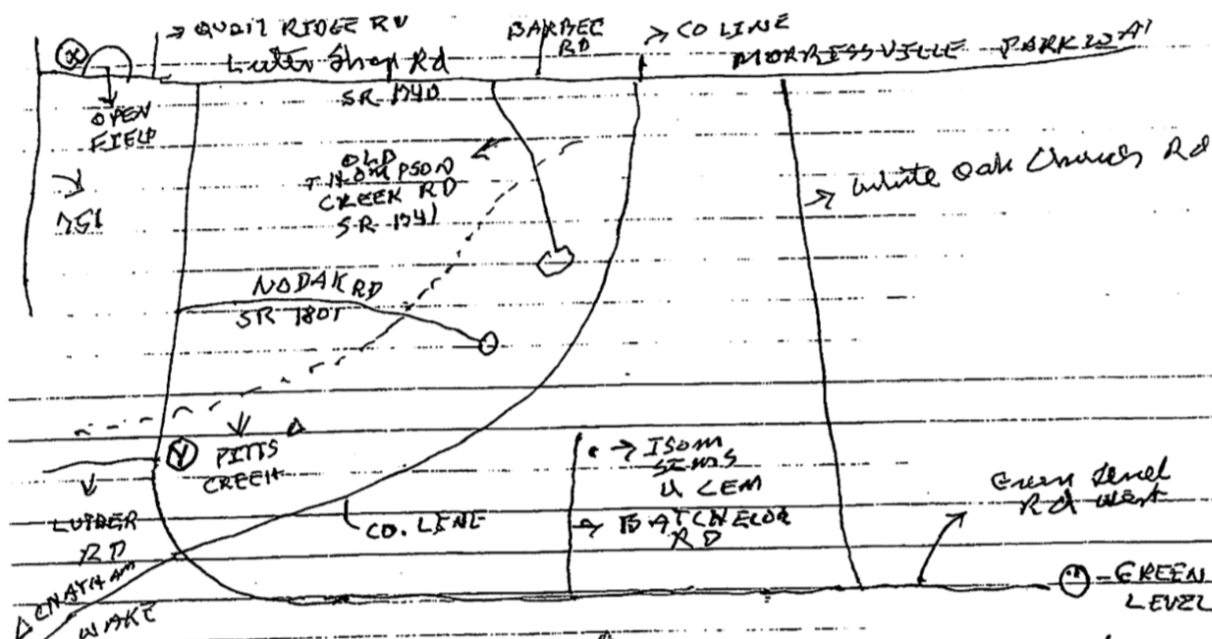 X
→ QUAIL RIDGE RD
BARBEE
RD
→ CO LINE
MORRISSVILLE PARKWAY
Luter Shop Rd
SR 1740
OPEN
FIELD
751
OLD
THOMPSON
CREEK RD
SR 1741
→ White Oak Church Rd
NODAK RD
SR 1801
Y
PITTS
CREEK
LUTHER
RD
CO. LINE
• → ISOM
SIMS
U CEM
→ BATCHELOR
RD
Green Level
Rd West
- GREEN
LEVEL
CHATHAM
WAKE